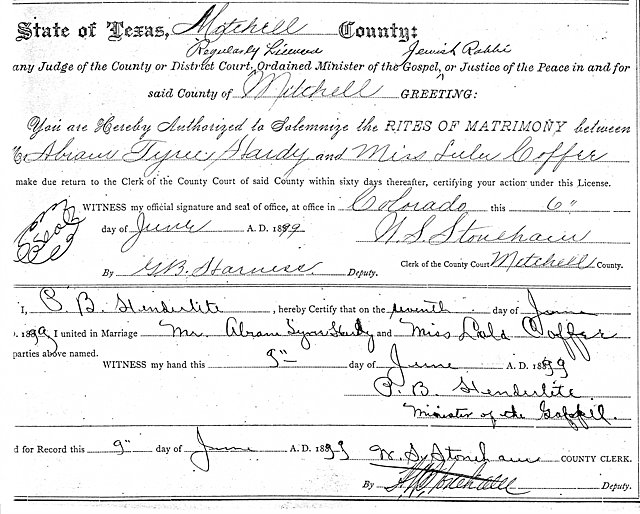 State of Texas, Mitchell County:
Regularly Licensed Jewish Rabbi
any Judge of the County or District Court, Ordained Minister of the Gospel, or Justice of the Peace in and for
said County of Mitchell GREETING:
You are Hereby Authorized to Solemnize the RITES OF MATRIMONY between
Abram Hardy and Miss Lulu Coffer
make due return to the Clerk of the County Court of said County within sixty days thereafter, certifying your action under this License.
WITNESS my official signature and seal of office, at office in Colorado this 6"
day of June A. D. 1899 W. S. Stoneham
By G. B. Harness Deputy. Clerk of the County Court Mitchell County.
I, P. B. Henderlite, hereby Certify that on the seventh day of June
1899 I united in Marriage Mr. Abram Hardy and Miss Lula Coffer
parties above named.
WITNESS my hand this 9" day of June A. D. 1899
P. B. Henderlite
Minister of the Gospel.
d for Record this 9" day of June A. D. 1899 W. S. Stoneham COUNTY CLERK.
By Deputy.